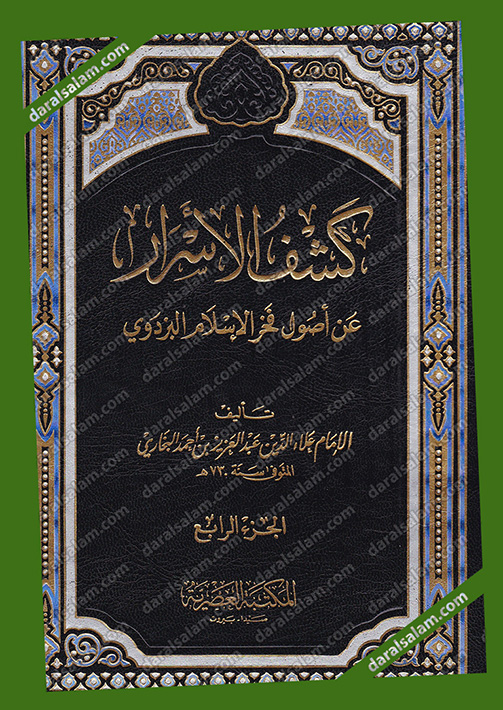 daralsalam.com
كشف الأسرار
عن أصول فخر الإسلام البزدوي
تأليف
الإمام علاء الدين عبد العزيز بن أحمد البخاري
المتوفى سنة ٧٣٠ هـ
الجزء الرابع
المكتبة العصرية
صيدا - بيروت
daralsalam.com